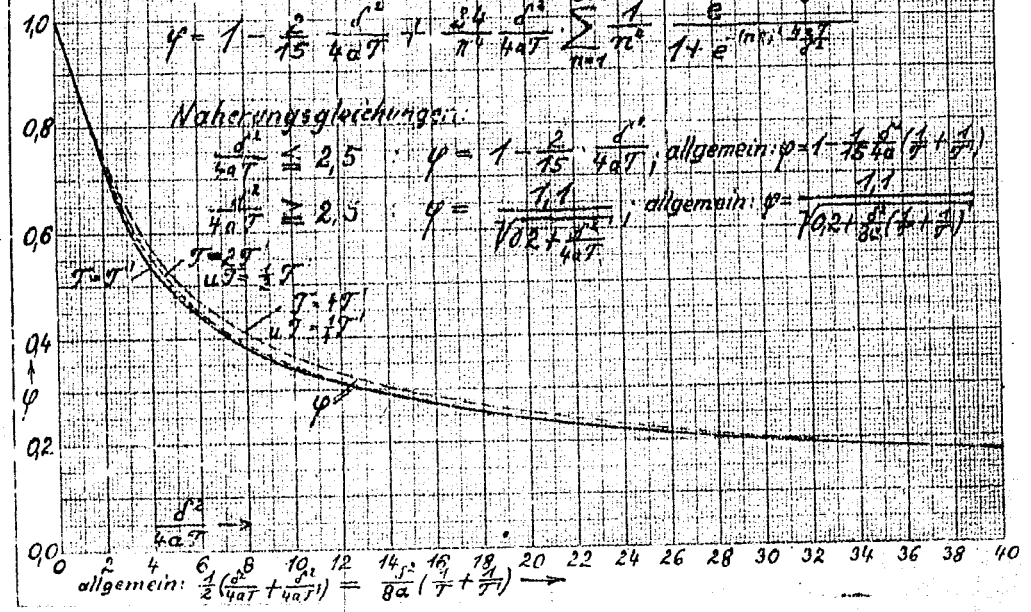 1,0
φ = 1 - 2/15 · δ²/4aT + 24/π⁴ · δ²/4aT · Σ n=1 1/n⁴ · e / 1 + e
Näherungsgleichungen:
δ²/4aT ≦ 2,5 : φ = 1 - 2/15 · δ²/4aT ; allgemein: φ = 1 - 1/15 δ²/4a (1/T + 1/T')
δ²/4aT ≧ 2,5 : φ = 1,1/√(0,2 + δ²/4aT) ; allgemein: φ = 1,1/√(0,2 + δ²/8a (1/T + 1/T'))
0,8
0,6
T = T'
T = 2T'
u T = 1/2 T'
T = 4T'
u T = 1/4 T'
0,4
φ
φ
0,2
δ²/4aT →
0,0
0 2 4 6 8 10 12 14 16 18 20 22 24 26 28 30 32 34 36 38 40
allgemein: 1/2 (δ²/4aT + δ²/4aT') = δ²/8a (1/T + 1/T') →